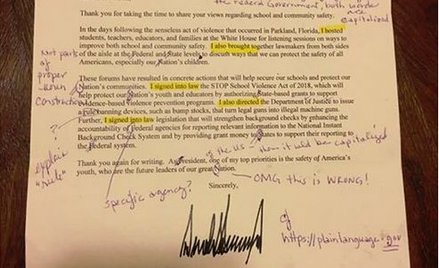 the Federal Government, both words
are
capitalized
Thank you for taking the time to share your views regarding school and community safety.
In the days following the senseless act of violence that occurred in Parkland, Florida, I hosted
students, teachers, educators, and families at the White House for listening sessions on ways to
improve both school and community safety. I also brought together lawmakers from both sides
of the aisle at the Federal and State levels to discuss ways that we can protect the safety of all
Americans, especially our Nation's children.
Not part
of
proper
noun
construction
These forums have resulted in concrete actions that will help secure our schools and protect our
Nation's communities. I signed into law the STOP School Violence Act of 2018, which will
help protect our Nation's youth and educators by authorizing State-based grants to support
evidence-based violence prevention programs. I also directed the Department of Justice to issue
a rule banning devices, such as bump stocks, that turn legal guns into illegal machine guns.
Further, I signed into law legislation that will strengthen background checks by enhancing the
accountability of Federal agencies for reporting relevant information to the National Instant
Background Check System and by providing grant money to States to support their reporting to
the Federal system.
?
explain
"rule"
of the US - then it'd be capitalized
Thank you again for writing. As President, one of my top priorities is the safety of America's
youth, who are the future leaders of our great Nation.
OMG this is WRONG!
Sincerely,
specific agency?
cf
https://plainlanguage.gov